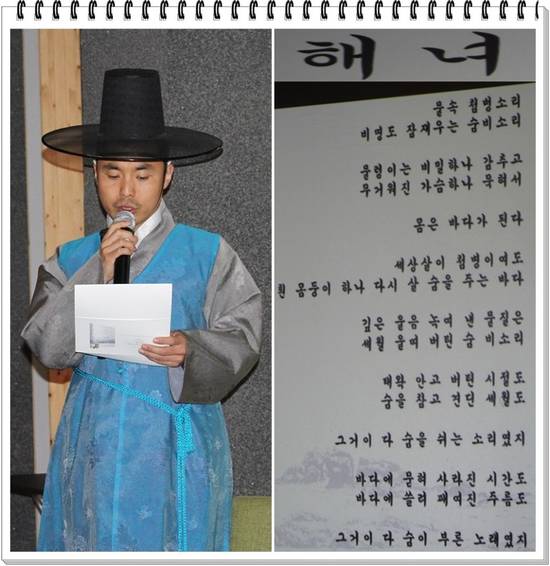 해 녀
물속 첨벙소리
비명도 잠재우는 숨비소리
물렁이는 비밀하나 감추고
무거워진 가슴하나 묵혀서
몸은 바다가 된다
세상살이 첨벙이여도
몸둥이 하나 다시 살 숨을 주는 바다
깊은 울음 녹여 낸 물질은
세월 울여 버틴 숨 비소리
태왁 안고 버틴 시절도
숨을 참고 견딘 세월도
그거이 다 숨을 쉬는 소리였지
바다에 묻혀 사라진 시간도
바다에 쓸려 패여진 주름도
그거이 다 숨이 부른 노래였지